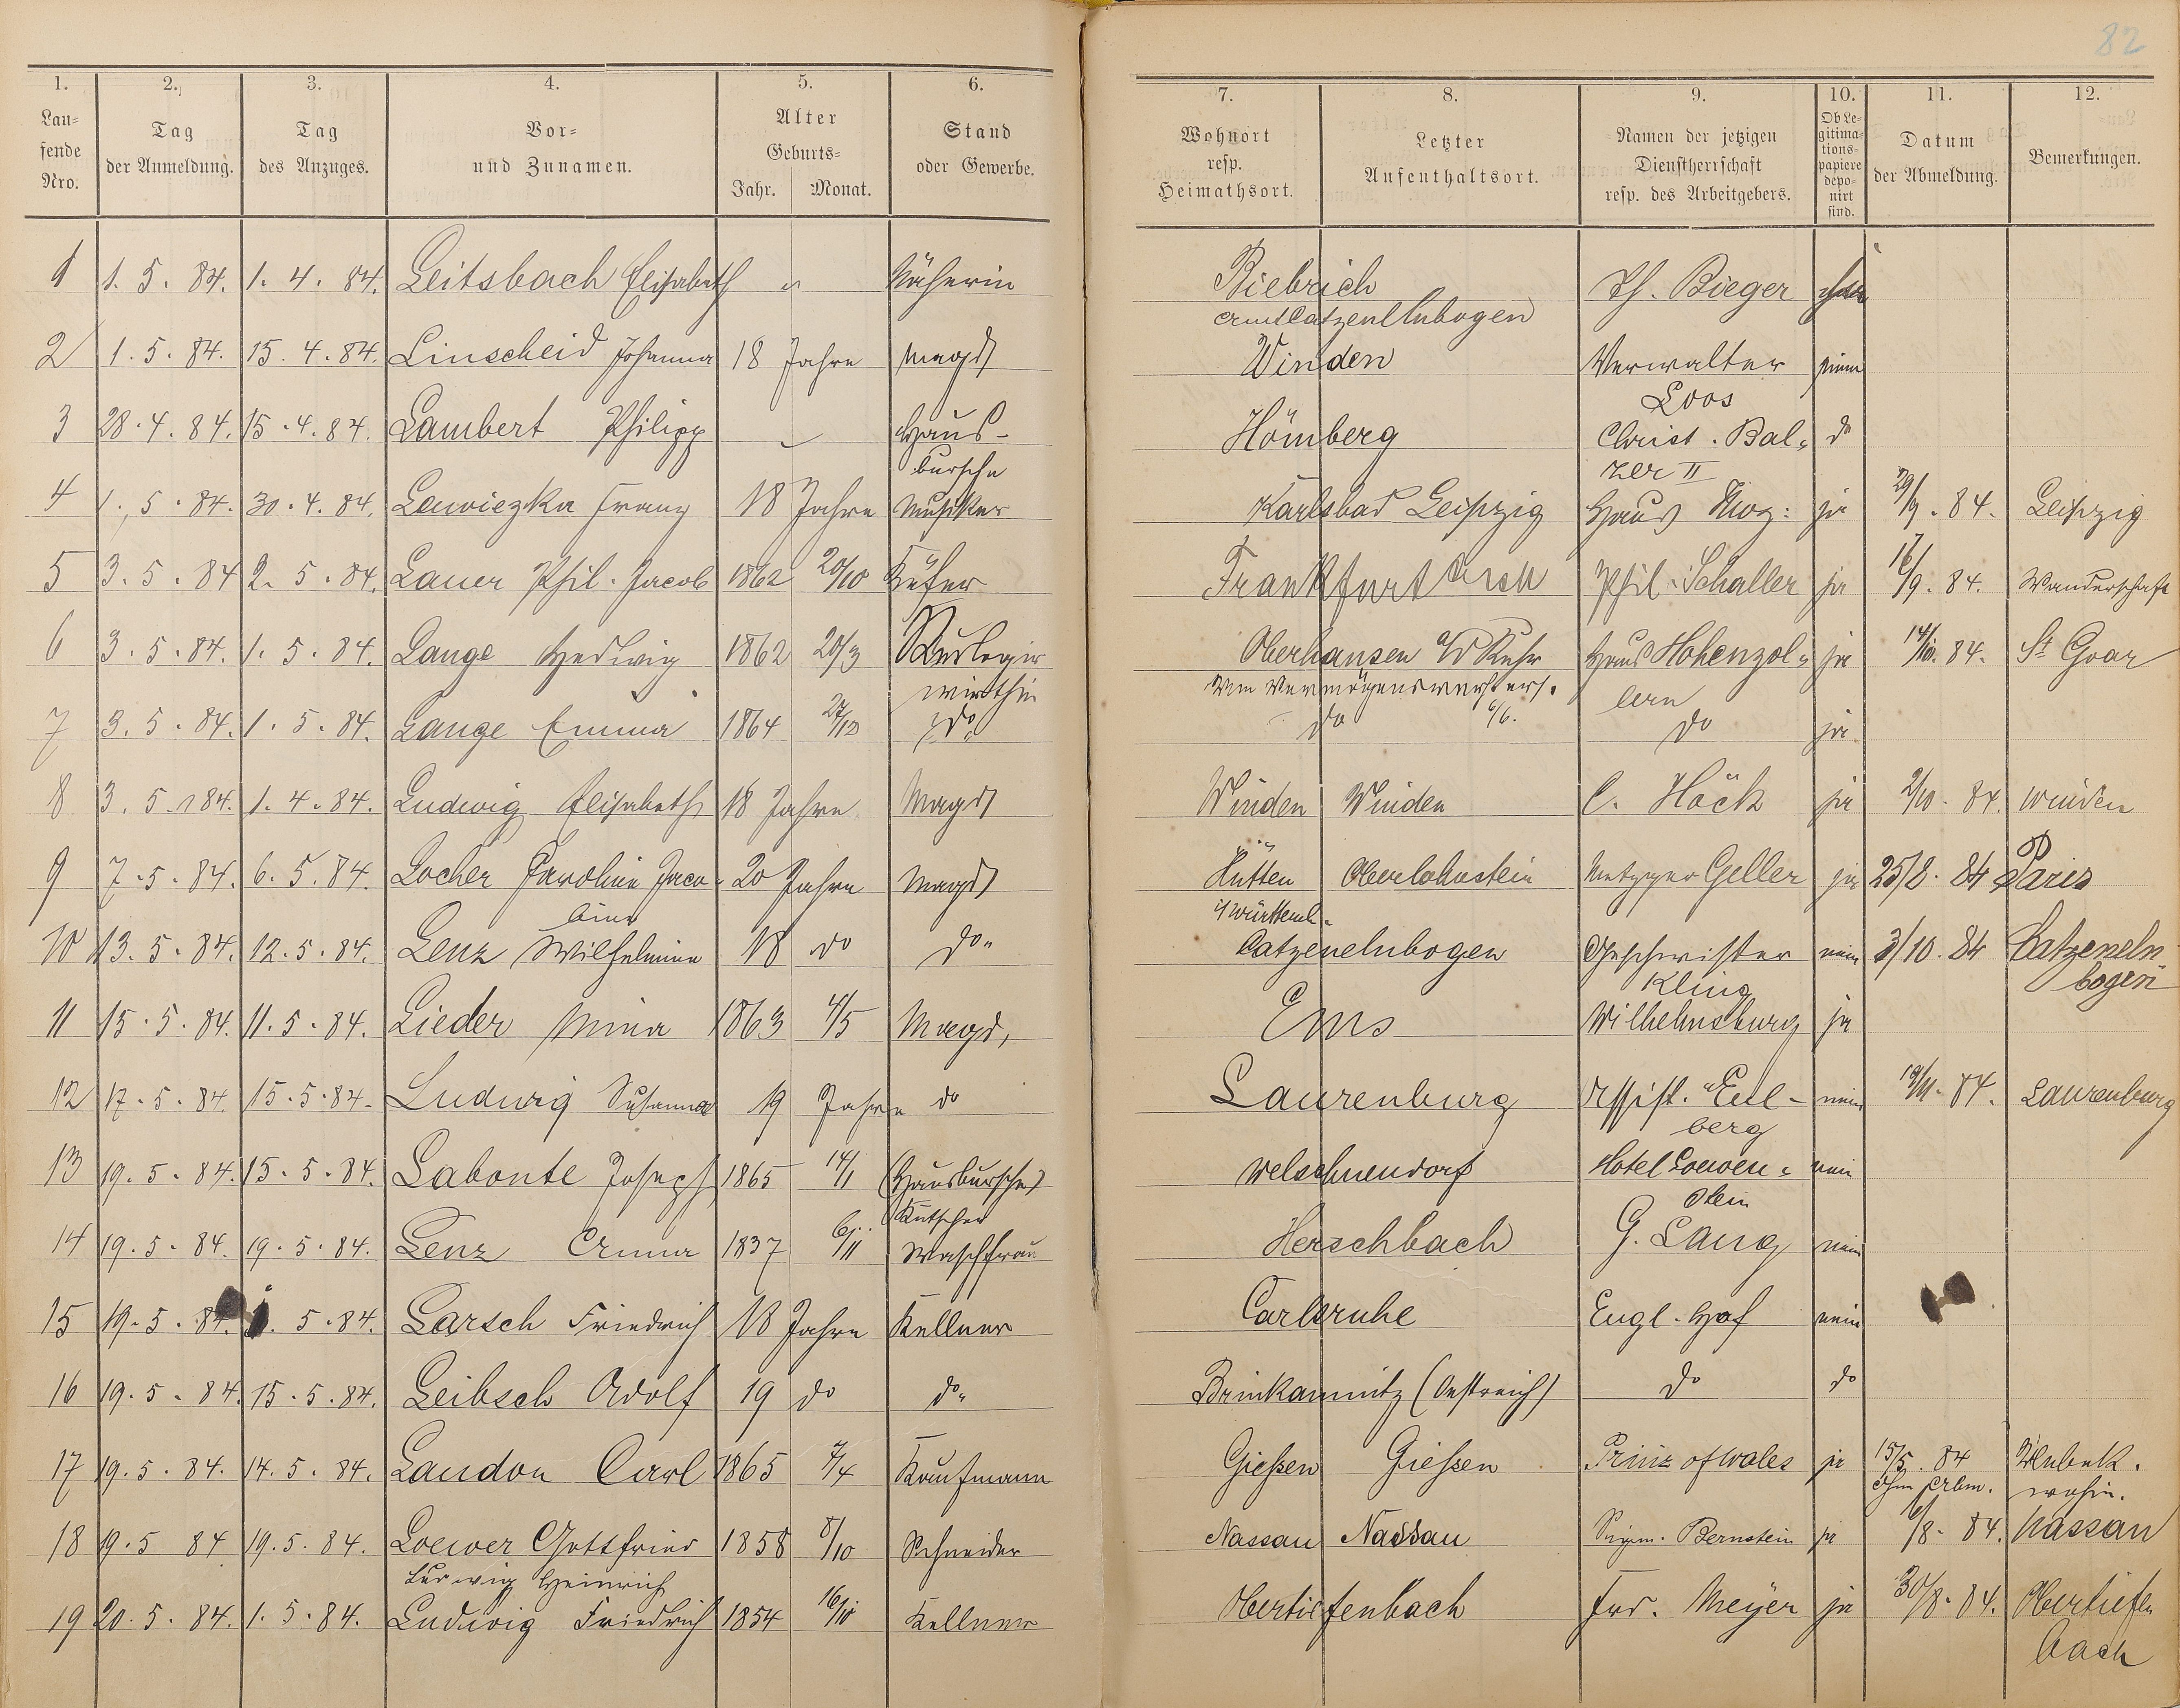 82
1. 2. 3. 4. 5. 6. 7. 8. 9. 10. 11. 12.
Lau-
fende
Nro.
Tag
der Anmeldung.
Tag
des Anzuges.
Vor-
und Zunamen.
Alter
Geburts-
Jahr. Monat.
Stand
oder Gewerbe.
Wohnort
resp.
Heimathsort.
Letzter
Aufenthaltsort.
Namen der jetzigen
Dienstherrschaft
resp. des Arbeitgebers.
Ob Le-
gitima-
tions-
papiere
depo-
nirt
sind.
Datum
der Abmeldung.
Bemerkungen.
1 1. 5. 84. 1. 4. 84. Leitsbach Elisabeth " Näherin Biebrich Ph. Bieger
Amt Catzenellnbogen
2 1. 5. 84. 15. 4. 84. Linscheid Johanna 18 Jahre Magd Winden Verwalter nein
Loos
3 28. 4. 84. 15. 4. 84. Lambert Philipp Haus- Hömberg Christ. Bal- do
bursche zer II
4 1. 5. 84. 30. 4. 84. Lewiezka Franz 18 Jahre Musiker Karlsbad Leipzig Haus ja 29/9. 84. Leipzig
5 3. 5. 84 2. 5. 84. Lauer Phil. Jacob 1862 20/10 Küfer Frankfurt Phil. Schaller ja 16/9. 84. Wanderschaft
6 3. 5. 84. 1. 5. 84. Lange Hedwig 1862 20/3 Kurlogir Oberhausen a/d Ruhr Haus Hohenzol- ja 14/10. 84. St Goar
wirthin lern
7 3. 5. 84. 1. 5. 84. Lange Emma 1864 27/12 do do 6/6. do ja
8 3. 5. 84. 1. 4. 84. Ludwig Elisabeth 18 Jahre Magd Winden Winden C. Höck ja 2/10. 84. Winden
9 7. 5. 84. 6. 5. 84. Locher Karoline Jaco- 20 Jahre Magd Hütten Oberlahnstein Metzger Geller ja 25/8. 84 Paris
bine i/Württemb.
10 13. 5. 84. 12. 5. 84. Lenz Wilhelmine 18 do do Catzenelnbogen Geschwister nein 3/10. 84 Catzeneln
Kling bogen
11 15. 5. 84. 11. 5. 84. Lieder Mina 1863 4/5 Magd, Ems Wilhelmsburg ja
12 17. 5. 84. 15. 5. 84. Ludwig Susanna 19 Jahre do Laurenburg Assist. Eul- nein 19/11. 84. Laurenburg
berg
13 19. 5. 84. 15. 5. 84. Labonte Joseph 1865 14/1 (Hausbursche) Welschneudorf Hotel Loewen- nein
Kutscher stein
14 19. 5. 84. 19. 5. 84. Lenz Anna 1837 6/11 Waschfrau Herschbach G. Lang nein
15 19. 5. 84. 1. 5. 84. Larsch Friedrich 18 Jahre Kellner Carlsruhe Engl. Hof nein
16 19. 5. 84. 15. 5. 84. Leibsch Adolf 19 do do Brinkamnitz (Oestreich) do do
17 19. 5. 84. 14. 5. 84. Landon Carl 1865 7/4 Kaufmann Giessen Giessen Prinz of Wales ja 15/5. 84 Unbek.
Ohn Abm. wohin.
18 19. 5 84 19. 5. 84. Loewer Gottfried 1858 8/10 Schneider Nassau Nassau Sigm. Bernstein ja 6/8. 84. Nassau
Ludwig Heinrich
19 20. 5. 84. 1. 5. 84. Ludwig Friedrich 1854 16/10 Kellner Obertiefenbach Frd. Meyer ja 30/8. 84. Obertiefen
bach